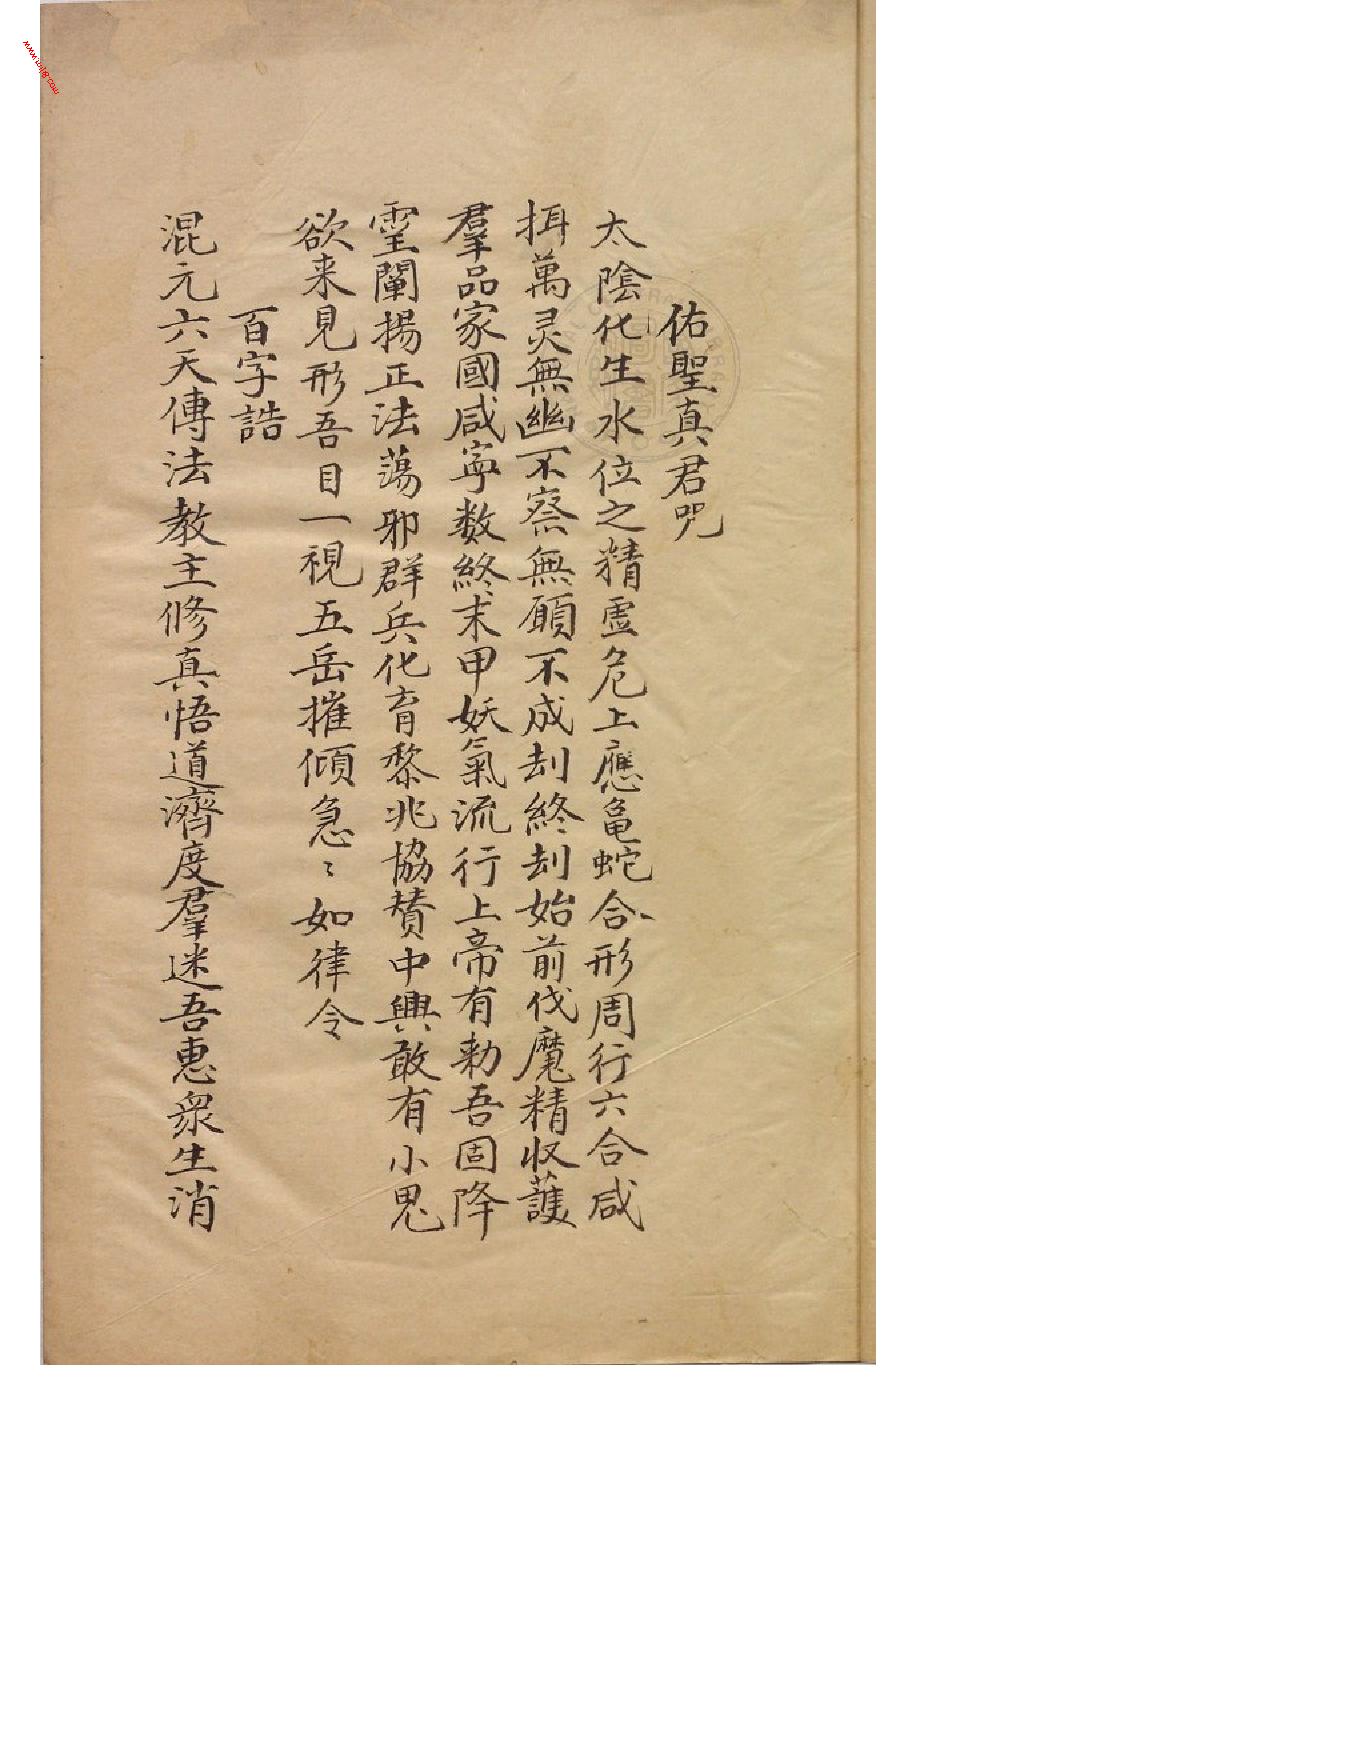 佑聖真君咒
太陰化生水位之精虛危上應龜蛇合形周行六合咸
揖萬灵無幽不察無願不成刦終刦始前伐魔精收護
羣品家國咸寧数終末甲妖氣流行上帝有勅吾固降
靈闡揚正法蕩邪群兵化育黎兆協賛中興敢有小鬼
欲来見形吾目一視五岳摧傾急〻如律令
百字誥
混元六天傳法教主修真悟道濟度羣迷吾惠衆生消